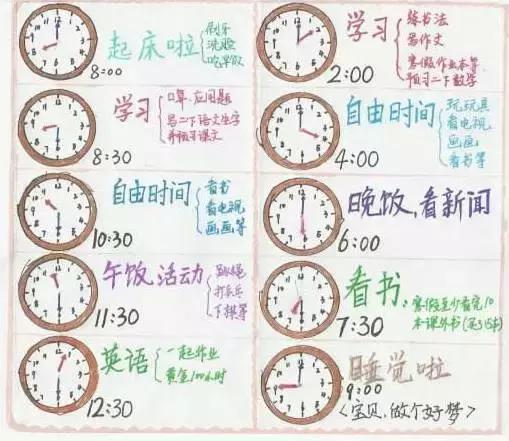 起床啦
刷牙
洗脸
吃早饭
8:00
学习
口算、应用题
写二下语文生字
并预习课文
8:30
自由时间
看书
看电视
画画等
10:30
午饭,活动
跳绳
打乒乓
下棋等
11:30
英语
一起作业
黄金100小时
12:30
学习
练书法
写作文
寒假作业本等
预习二下数学
2:00
自由时间
玩玩具
看电视
画画
看书等
4:00
晚饭,看新闻
6:00
看书,
寒假至少看完10
本课外书
7:30
睡觉啦
9:00
<宝贝,做个好梦>